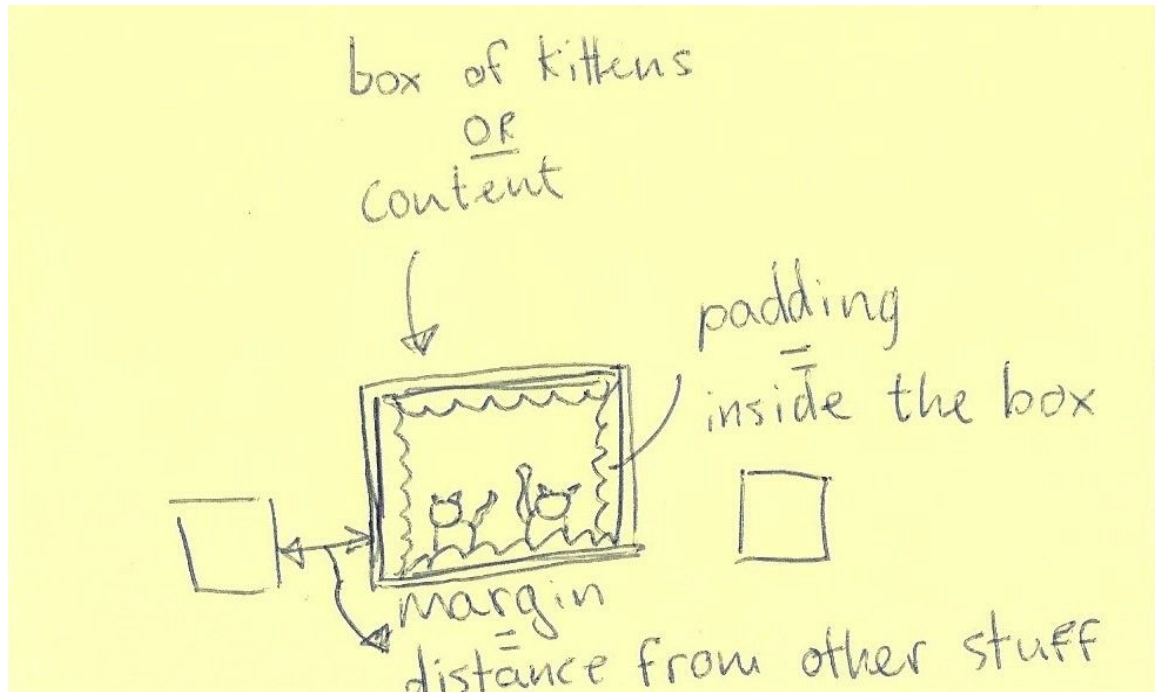 box of kittens
OR
content
padding
=
inside the box
margin
=
distance from other stuff